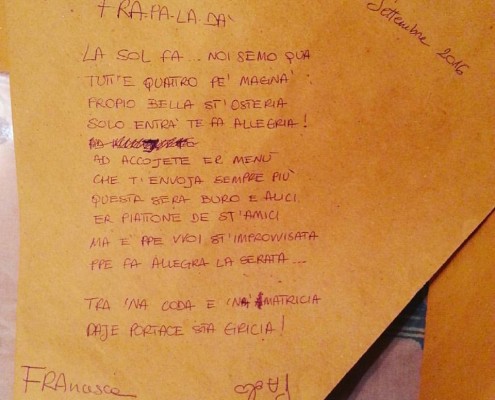 TRA.PA.LA.DA'
Settembre 2016
LA SOL FA... NOI SEMO QUA
TUTT'E QUATTRO PE' MAGNA'
PROPIO BELLA ST'OSTERIA
SOLO ENTRA' TE FA ALLEGRIA!
AD ACCOJETE ER MENÙ
CHE T'ENVOJA SEMPRE PIÙ
QUESTA SERA BURO E ALICI
ER PIATTONE DE ST'AMICI
MA E' PPE VVOI ST'IMPROVVISATA
PPE FA ALLEGRA LA SERATA...
TRA 'NA CODA E 'NA MATRICIA
DAJE PORTACE STA GRICIA!
FRANCESCA